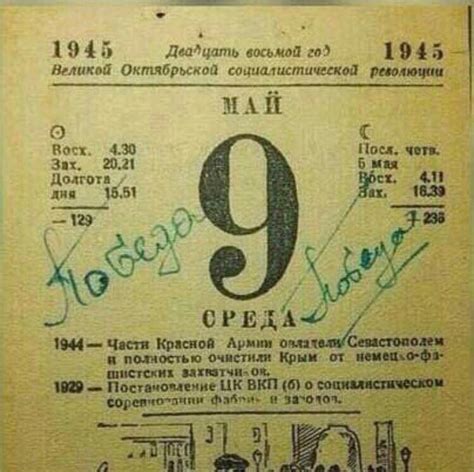 1945 Двадцать восьмой год 1945
Великой Октябрьской социалистической революции
МАЙ
Восх. 4.30
Зах. 20.21
Долгота
дня 15.51
— 129
9
Посл. четв.
5 мая
Восх. 4.11
Зах. 16.39
+ 236
Победа
Победа
СРЕДА
1944 — Части Красной Армии овладели Севастополем
и полностью очистили Крым от немецко-фа-
шистских захватчиков.
1929 — Постановление ЦК ВКП (б) о социалистическом
соревновании фабрик и заводов.